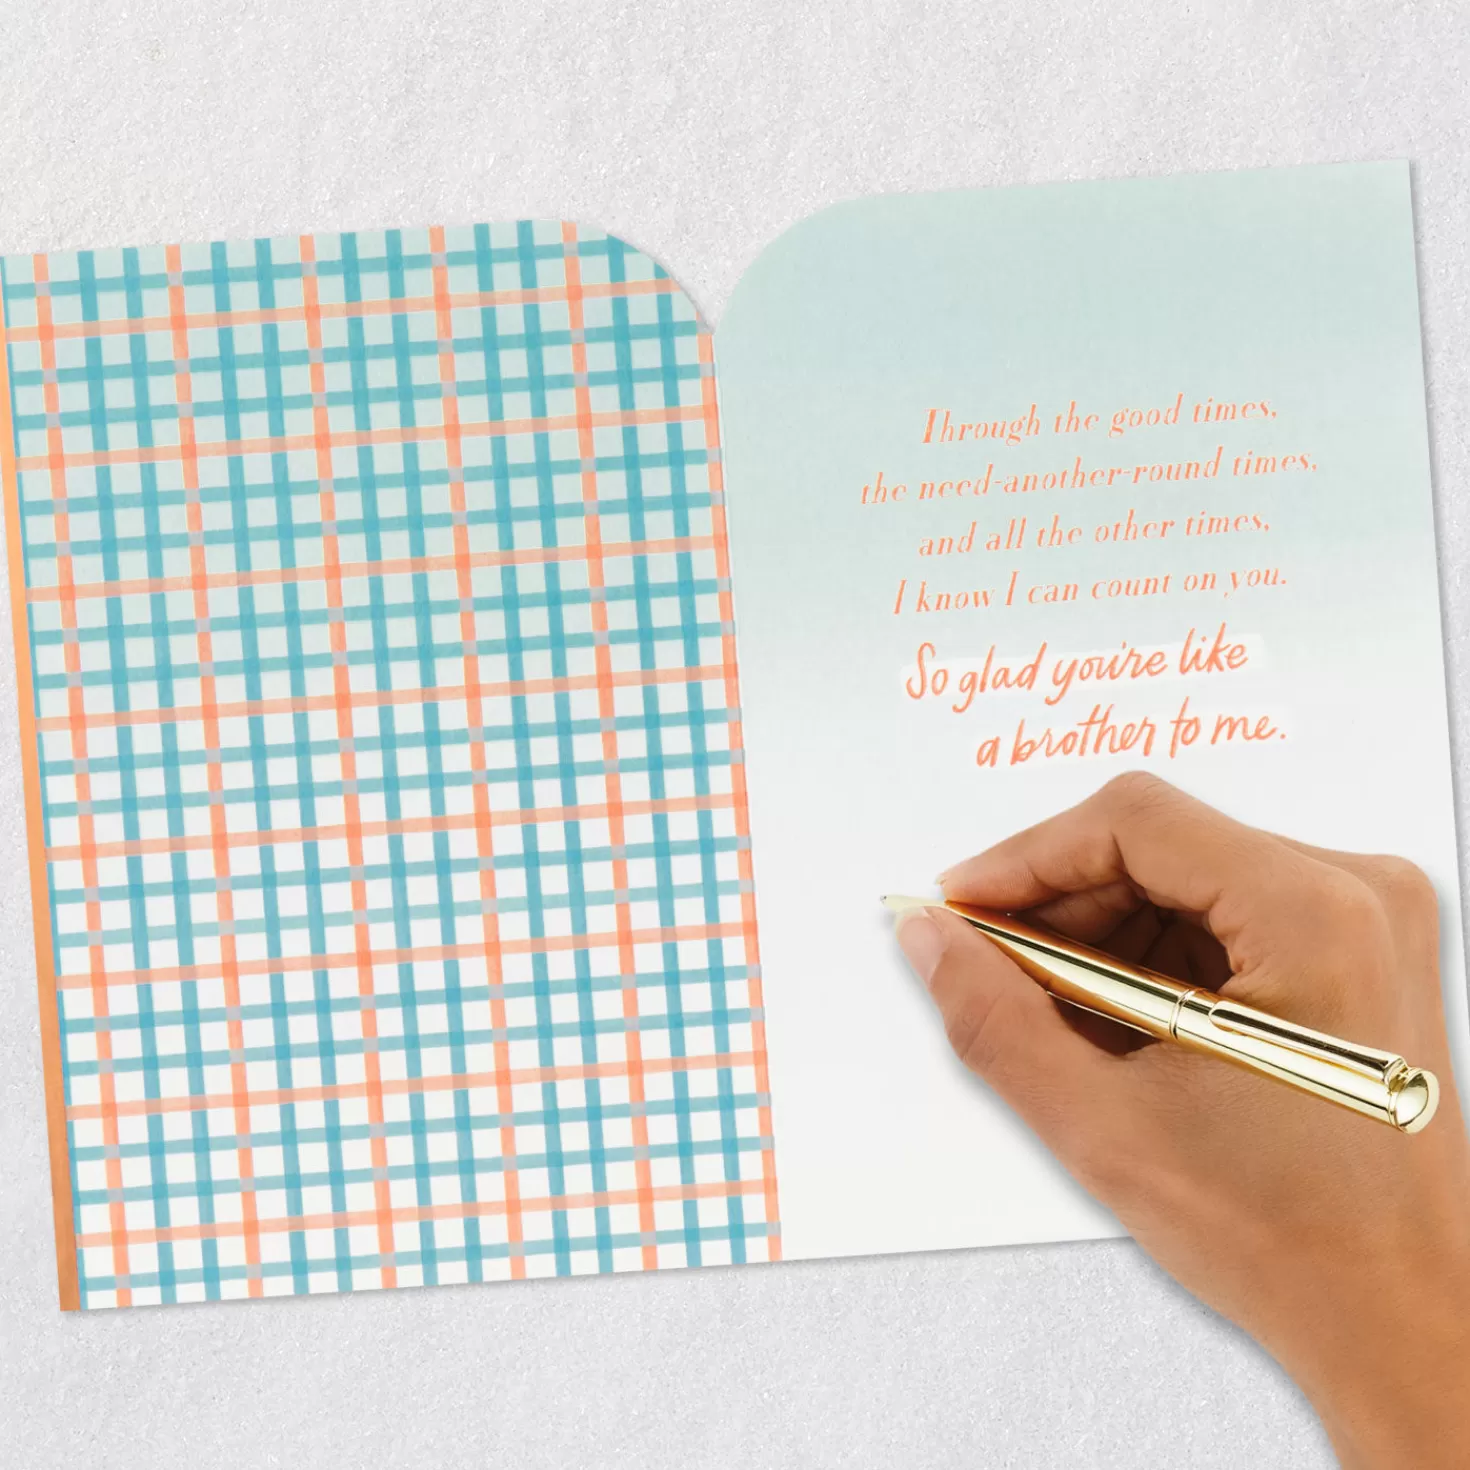 Through the good times,
the need-another-round times,
and all the other times,
I know I can count on you.
So glad you're like
a brother to me.